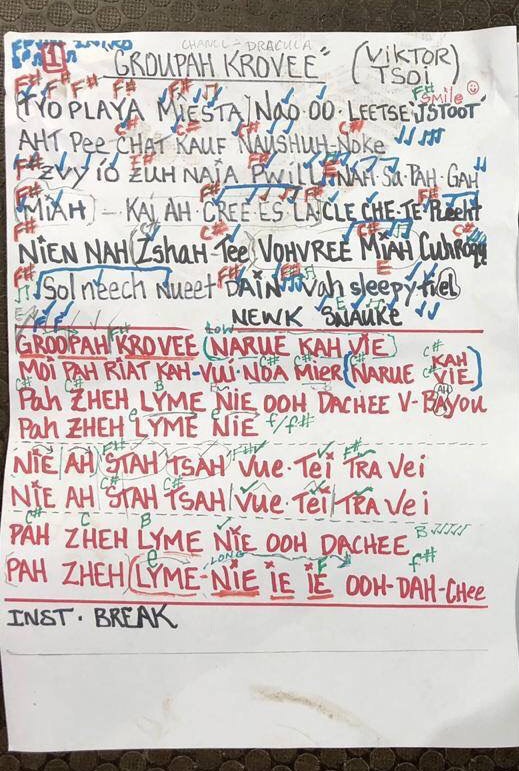 CHANEL - DRACULA
1 "GROUPAH KROVEE" (VIKTOR TSOI)
F# F F# F# F# F# smile
(TYO PLAYA MIESTA) NOO·OO·LEETSE 'JSTOOT'
C# C# C#
AHT Pee CHAT KAUF NAUSHUH-Noke
F# E
ZVY IO ZUH NAJA PWILL NAH·Sa·PAH·GAH
F# F# F#
MIAH) - KAJ AH CREE ES LA CLE CHE-TE
F# C# C#
NIEN NAH (IZshaH-Tee) VOHVREE MIAH
F# E
Sol neech nueet DAIN vah sleepy
NEWK SNAUKE
F# LOW
GROOPAH KROVEE (NARUE KAH VIE)
C# C# C# C#
MOI PAH RIAT KAH-VUI NOA MIER (NARUE KAH VIE)
C# B AH
Pah ZHEH LYME NIE OOH DACHEE V-BAyou
e e f/f#
Pah ZHEH LYME NIE
F# F# F#
NIE AH STAH TSAH VUE·Tei TRA Vei
C# C#
NIE AH STAH TSAH VUE Tei TRA Vei
C# C B B
PAH ZHEH LYME NIE OOH DACHEE
e LONG F f#
PAH ZHEH (LYME-NIE IE IE OOH-DAH-CHee
INST · BREAK